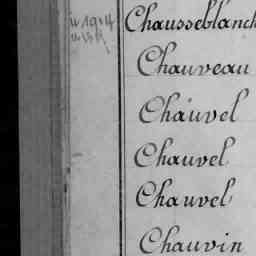 Chausseblanch
Chauveau
Chauvel
Chauvel
Chauvel
Chauvin